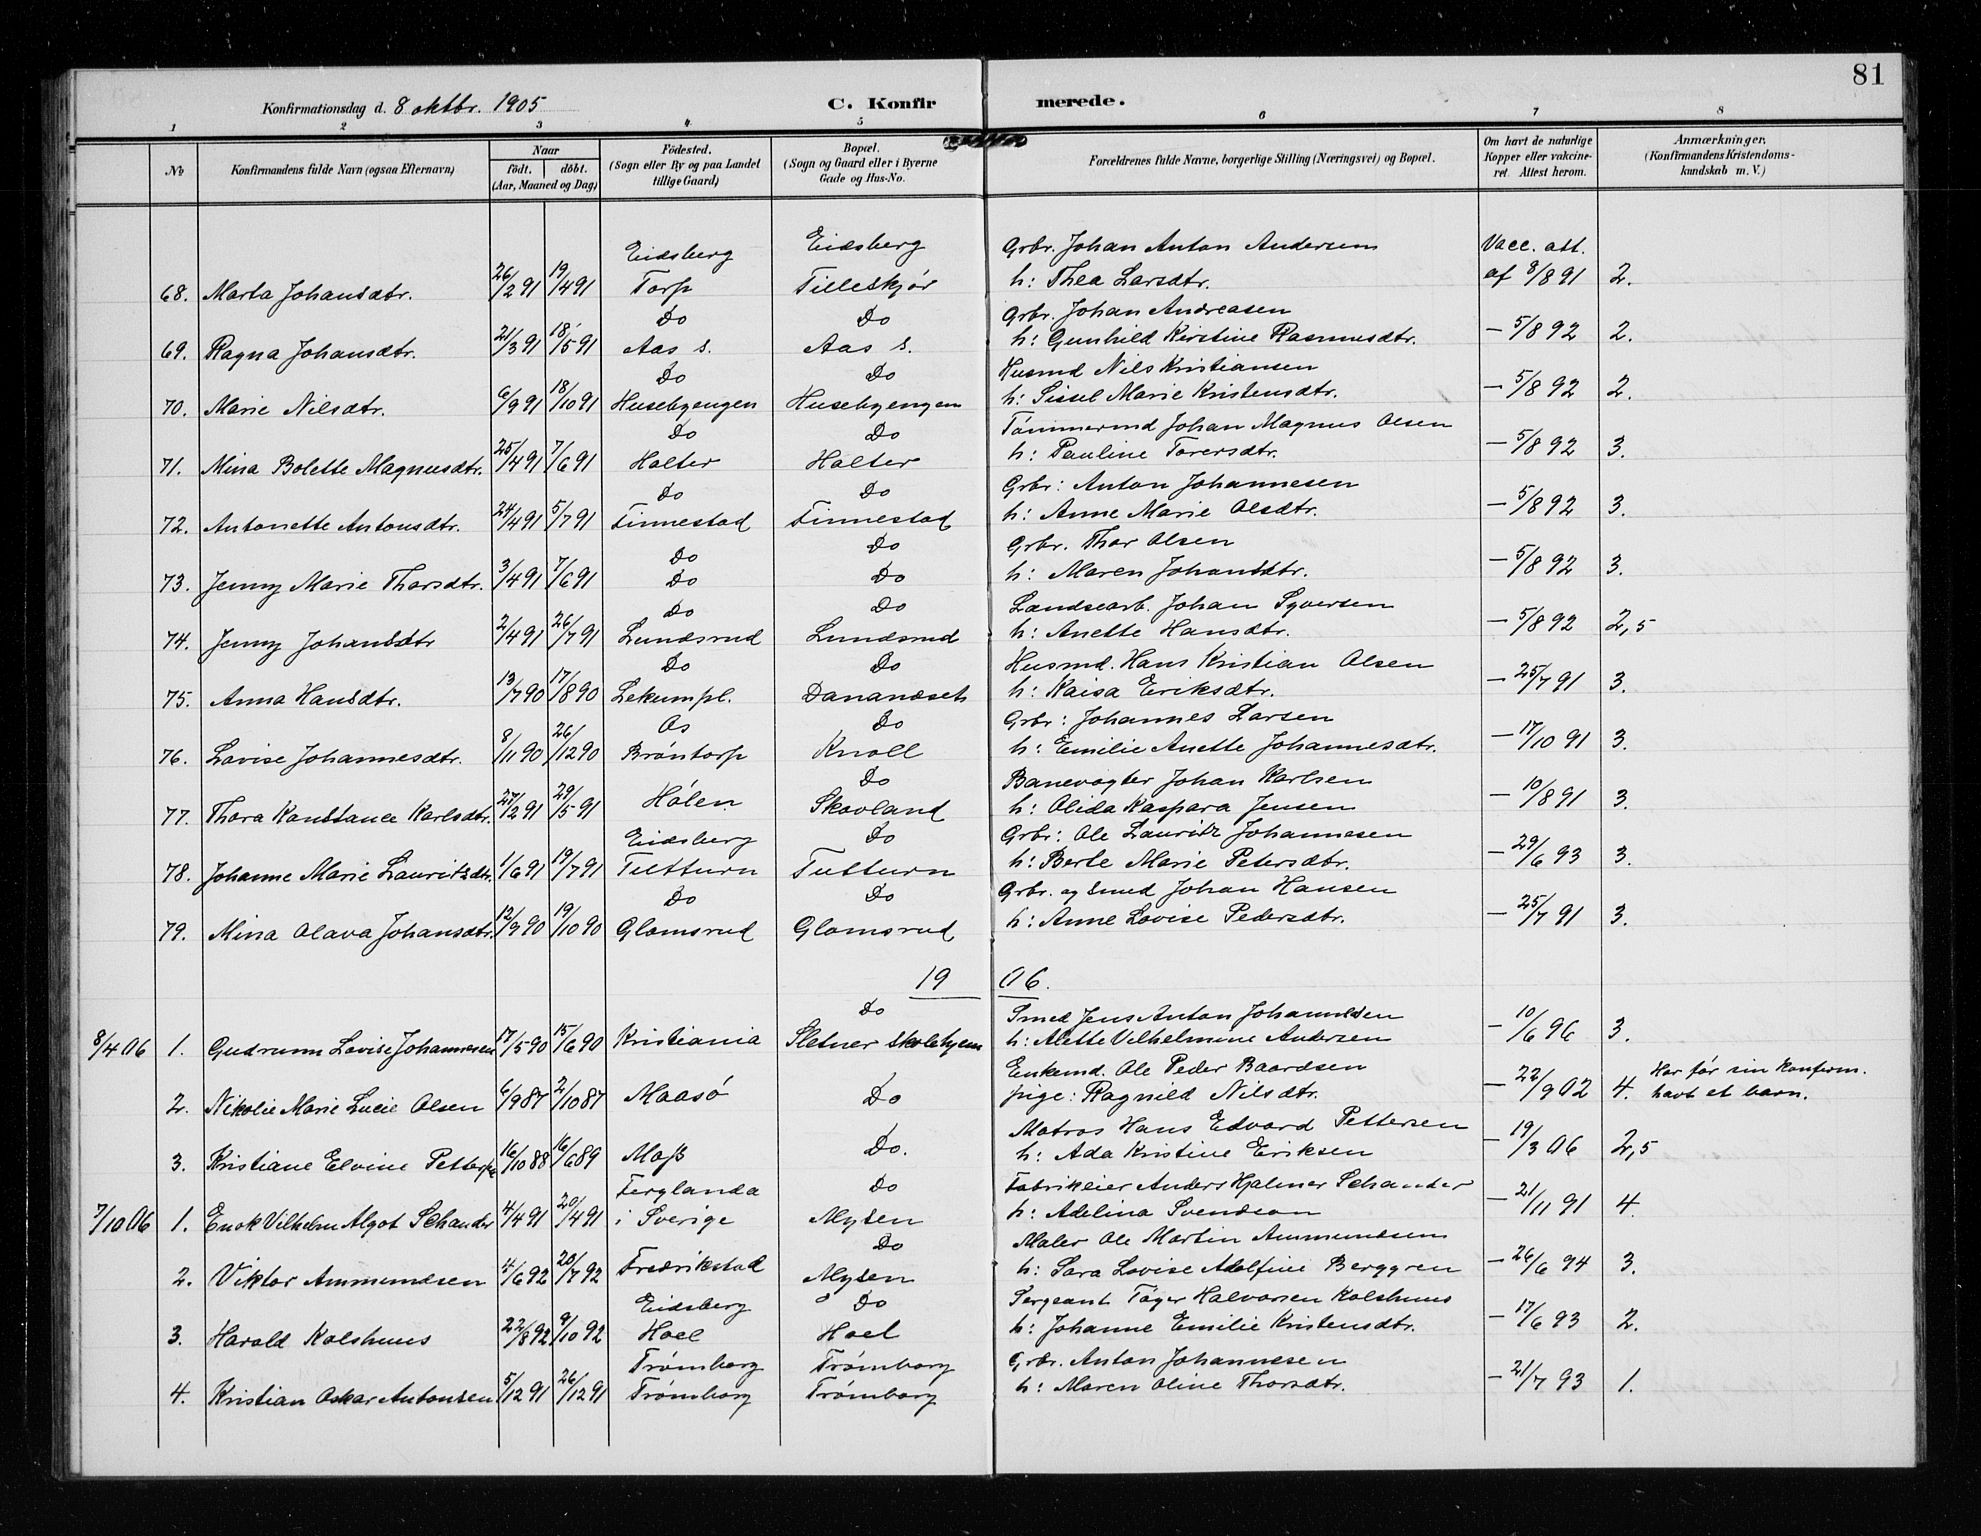 81
Konfirmationsdag d. 8 oktbr. 1905 C. Konfir merede.
1 2 3 4 5 6 7 8
No Konfirmandens fulde Navn (ogsaa Efternavn) Naar født. døbt. (Aar, Maaned og Dag) Födested. (Sogn eller By og paa Landet tillige Gaard) Bopæl. (Sogn og Gaard eller i Byerne Gade og Hus-No. Forældrenes fulde Navne, borgerlige Stilling (Næringsvei) og Bopæl. Om havt de naturlige Kopper eller vakcineret. Attest herom. Anmærkninger. (Konfirmandens Kristendomskundskab m. V.)
Eidsberg Eidsberg Grbr. Johan Anton Andersen Vacc. att.
68. Marta Johansdtr. 26/2 91 19/4 91 Torp Tilleskjør h: Thea Larsdtr. af 8/8 91 2.
Do Do Grbr. Johan Andreasen
69. Ragna Johansdtr. 21/3 91 18/5 91 Aas s. Aas s. h: Gunhild Kirstine Rasmusdtr. — 5/8 92 2.
Do Do Husmd Nils Kristiansen
70. Marie Nilsdtr. 6/9 91 18/10 91 Husebyengen Husebyengen h: Sissel Marie Kristensdtr. — 5/8 92 2.
Do Do Tømmermd Johan Magnus Olsen
71. Mina Bolette Magnusdtr. 25/4 91 7/6 91 Halter Halter h: Pauline Torersdtr. — 5/8 92 3.
Do Do Grbr: Anton Johannesen
72. Antonette Antonsdtr. 24/4 91 5/7 91 Finnestad Finnestad h: Anne Marie Olsdtr. — 5/8 92 3.
Do Do Grbr. Thor Olsen
73. Jenny Marie Thorsdtr. 3/4 91 7/6 91 Do Do h: Maren Johansdtr. — 5/8 92 3.
Do Do Landsearb. Johan Syversen
74. Jenny Johansdtr 2/4 91 26/7 91 Lundsrud Lundsrud h: Anette Hansdtr. — 5/8 92 2,5
Do Do Husmd. Hans Kristian Olsen
75. Anna Hansdtr. 13/7 90 17/8 90 Lekumpl. Dananæset h: Kaisa Eriksdtr. — 25/7 91 3.
As Do Grbr: Johannes Larsen
76. Lovise Johannesdtr. 8/11 90 26/12 90 Brøntorp Knoll h: Emilie Anette Johannesdtr. — 17/10 91 3.
Do Banevogter Johan Karlsen
77. Thora Konstance Karlsdtr. 27/2 91 29/5 91 Hølen Skovland h: Olida Kaspara Jensen — 10/8 91 3.
Eidsberg Do Grbr: Ole Lauritz Johannesen
78. Johanne Marie Lauritzdtr. 1/6 91 19/7 91 Tutturn Tutturn h: Berte Marie Petersdtr. — 29/6 93 3.
Do Do Grbr. og Smed Johan Hansen
79. Mina Olava Johansdtr. 12/9 90 19/10 90 Glomsrud Glomsrud h: Anne Lovise Pedersdtr. — 25/7 91 3.
19 06.
Do Smed Jens Anton Johannesen
8/4 06 1. Gudrunn Lovise Johannesen 17/5 90 15/6 90 Kristiania Sletner skolehjem h: Alette Vilhelmine Andersen — 10/6 96 3.
Enkemd. Ole Peder Baardsen Har før sin konfirm.
2. Nikolie Marie Lucie Olsen 6/9 87 2/10 87 Maasø Do pige: Ragnild Nilsdtr. — 22/9 02 4. havt et barn.
Matros Hans Edvard Pettersen
3. Kristiane Elvine Petter 16/10 88 16/6 89 Moss Do. h: Ada Kristine Eriksen — 19/3 06 2,5
Ferglanda Do Fabrikeier Anders Hjalmer Schander
7/10 06 1. Enok Vilhelm Algot Schander 4/4 91 20/4 91 i Sverige Mysen h: Adelina Svendson — 21/11 91 4.
Do Maler Ole Martin Ammundsen
2. Viktor Ammundsen 4/6 92 20/7 92 Fredrikstad Mysen h: Sara Lovise Adolfine Berggren — 26/6 94 3.
Eidsberg Do Sergeant Tøger Halvorsen Kolshuus
3. Harald Kolshuus 22/8 92 9/10 92 Hoel Hoel h: Johanne Emilie Kristensdtr. — 17/6 93 2.
Trømborg Trømborg Grbr. Anton Johannesen
4. Kristian Oskar Antonsen 5/12 91 26/12 91 Trømborg Trømborg h: Maren Oline Thorsdtr. — 21/7 93 1.